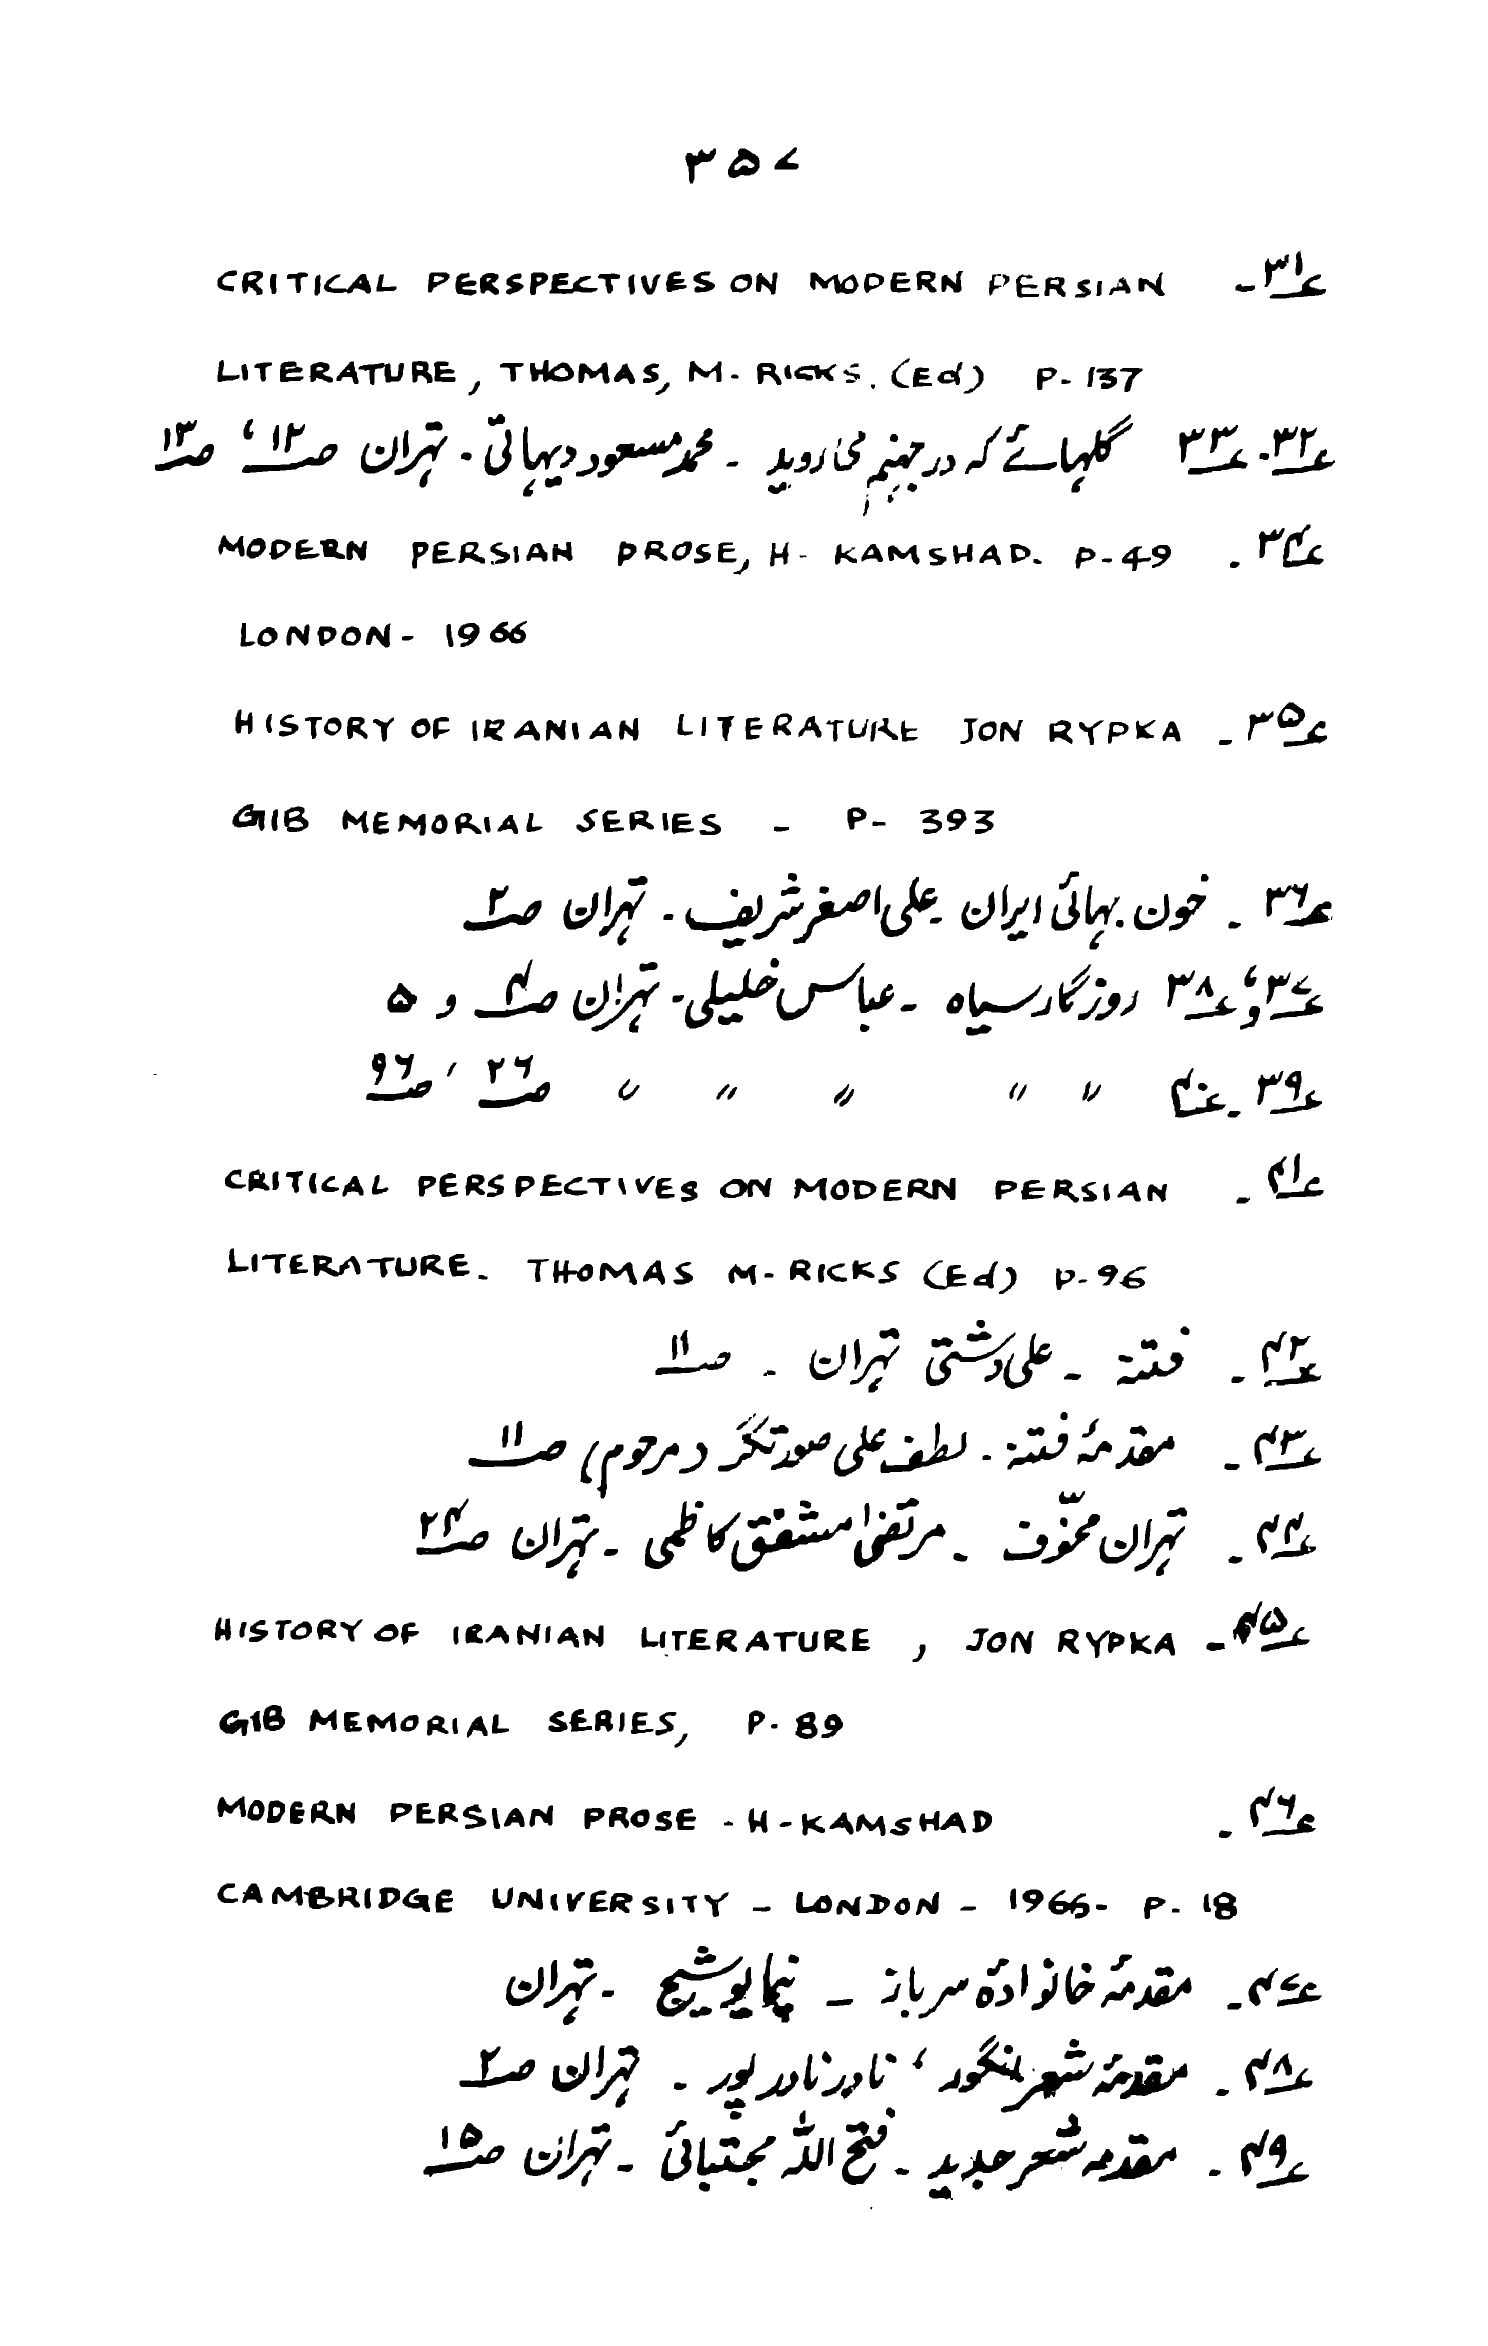 ۳۵۷
CRITICAL PERSPECTIVES ON MODERN PERSIAN ۳۱؎-
LITERATURE, THOMAS, M. RICKS. (Ed) P- 137
۳۲؎. ۳۳؎ گلہائے کہ در جہنم می روید - محمد مسعود دیہاتی. تہران ص۱۲، ص۱۳
MODERN PERSIAN PROSE, H- KAMSHAD. P-49 ۳۴؎.
LONDON- 1966
HISTORY OF IRANIAN LITERATURE JON RYPKA ۳۵؎-
GIIB MEMORIAL SERIES - P- 393
۳۶؎. خون بہائی ایران - علی اصغر شریف - تہران ص۲
۳۷؎، و ۳۸؎ روزگار سیاہ - عباس خلیلی - تہران ص۴ و ۵
۳۹؎. ۴۰؎ 〃 〃 〃 〃 〃 ص۲۶، ص۹۶
CRITICAL PERSPECTIVES ON MODERN PERSIAN ۴۱؎.
LITERATURE. THOMAS M- RICKS (Ed) P-96
۴۲؎. فتنۃ - علی دشتی تہران - ص۱۱
۴۳؎. مقدمۂ فتنۃ - لطف علی صورتگر (مرحوم) ص۱۱
۴۴؎. تہران مخوّف - مرتضیٰ مشفق کاظمی - تہران ص۲۴
HISTORY OF IRANIAN LITERATURE, JON RYPKA ۴۵؎-
GIB MEMORIAL SERIES, P- 89
MODERN PERSIAN PROSE - H-KAMSHAD ۴۶؎.
CAMBRIDGE UNIVERSITY - LONDON - 1966- P- 18
۴۷؎. مقدمۂ خانوادۂ سرباز - نیما یوشیج - تہران
۴۸؎. مقدمۂ شعر انگور، نادر نادر پور - تہران ص۲
۴۹؎. مقدمہ شعر جدید - فتح اللہ مجتبائی - تہران ص۱۵